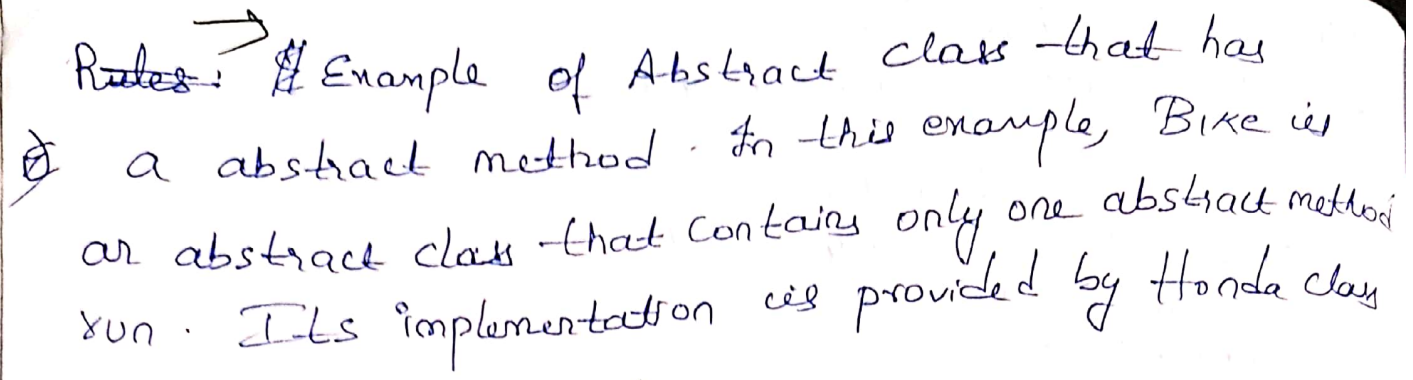 Rules: → Example of Abstract class that has
a abstract method. In this example, Bike is
an abstract class that contains only one abstract method
run. Its implementation is provided by Honda class